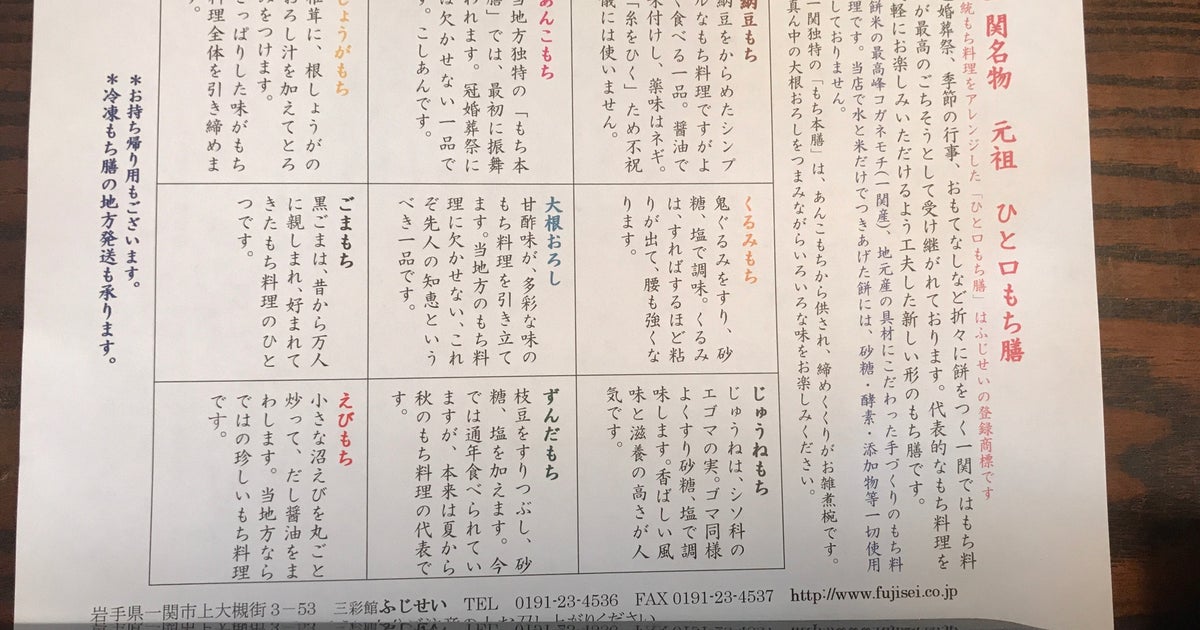 関名物 元祖 ひと口もち膳
統もち料理をアレンジした「ひと口もち膳」はふじせいの登録商標です
婚葬祭、季節の行事、おもてなしなど折々に餅をつく一関ではもち料
が最高のごちそうとして受け継がれております。代表的なもち料理を
軽にお楽しみいただけるよう工夫した新しい形のもち膳です。
餅米の最高峰コガネモチ(一関産)、地元産の具材にこだわった手づくりのもち料
理です。当店で水と米だけでつきあげた餅には、砂糖・酵素・添加物等一切使用
しておりません。
一関独特の「もち本膳」は、あんこもちから供され、締めくくりがお雑煮椀です。
真ん中の大根おろしをつまみながらいろいろな味をお楽しみください。
納豆もち
納豆をからめたシンプ
ルなもち料理ですがよ
く食べる一品。醤油で
味付けし、薬味はネギ。
「糸をひく」ため不祝
儀には使いません。
あんこもち
当地方独特の「もち本
膳」では、最初に振舞
われます。冠婚葬祭に
は欠かせない一品で
す。こしあんです。
しょうがもち
椎茸に、根しょうがの
おろし汁を加えてとろ
みをつけます。
さっぱりした味がもち
料理全体を引き締めま
くるみもち
鬼ぐるみをすり、砂
糖、塩で調味。くるみ
は、すればするほど粘
りが出て、腰も強くな
ります。
大根おろし
甘酢味が、多彩な味の
もち料理を引き立て
ます。当地方のもち料
理に欠かせない、これ
ぞ先人の知恵という
べき一品です。
ごまもち
黒ごまは、昔から万人
に親しまれ、好まれて
きたもち料理のひと
つです。
じゅうねもち
じゅうねは、シソ科の
エゴマの実。ゴマ同様
よくすり砂糖、塩で調
味します。香ばしい風
味と滋養の高さが人
気です。
ずんだもち
枝豆をすりつぶし、砂
糖、塩を加えます。今
では通年食べられてい
ますが、本来は夏から
秋のもち料理の代表で
す。
えびもち
小さな沼えびを丸ごと
炒って、だし醤油をま
わします。当地方なら
ではの珍しいもち料理
です。
*お持ち帰り用もございます。
*冷凍もち膳の地方発送も承ります。
岩手県一関市上大槻街3-53 三彩館ふじせい TEL 0191-23-4536 FAX 0191-23-4537 http://www.fujisei.co.jp